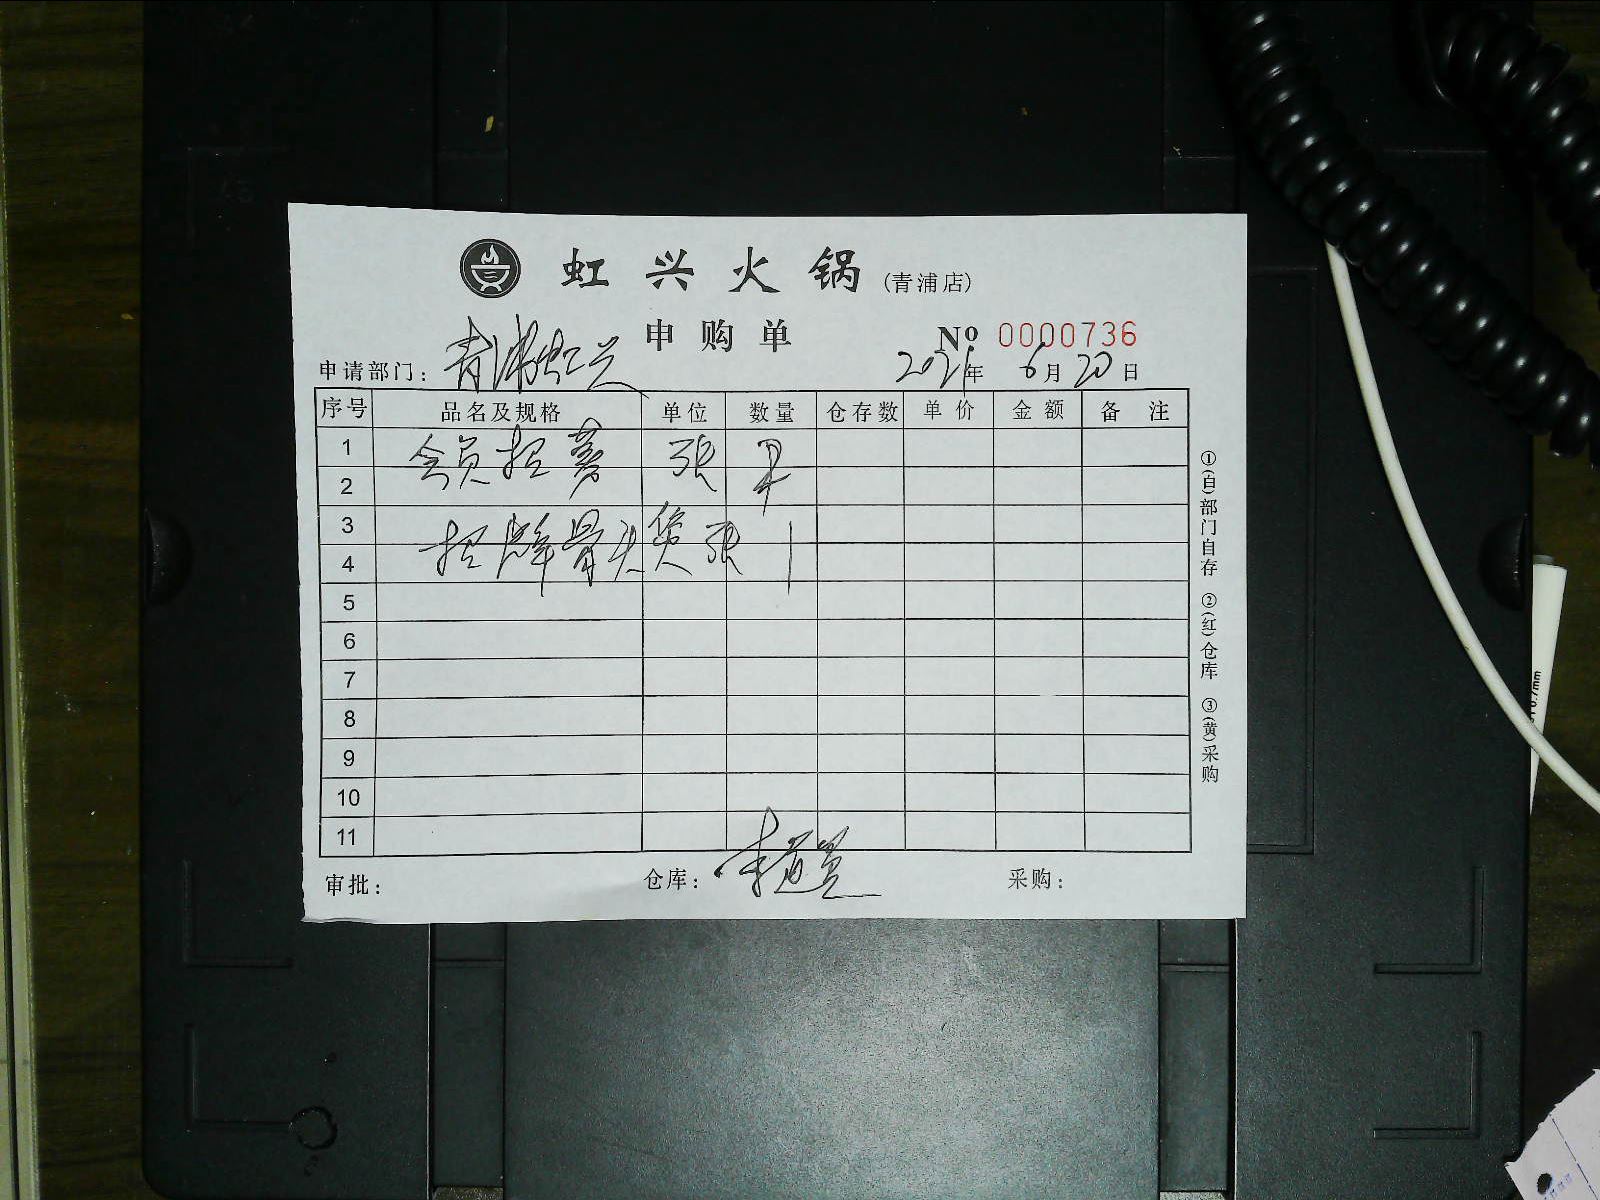 虹兴火锅(青浦店)
申购单 No 0000736
申请部门: 青浦虹兴 2021年 6月 20日
序号 品名及规格 单位 数量 仓存数 单价 金额 备注
1 会员招募 张
2
3 招牌骨头煲 张 1
4
5
6
7
8
9
10
11
审批: 仓库: 采购:
①(白)部门自存 ②(红)仓库 ③(黄)采购